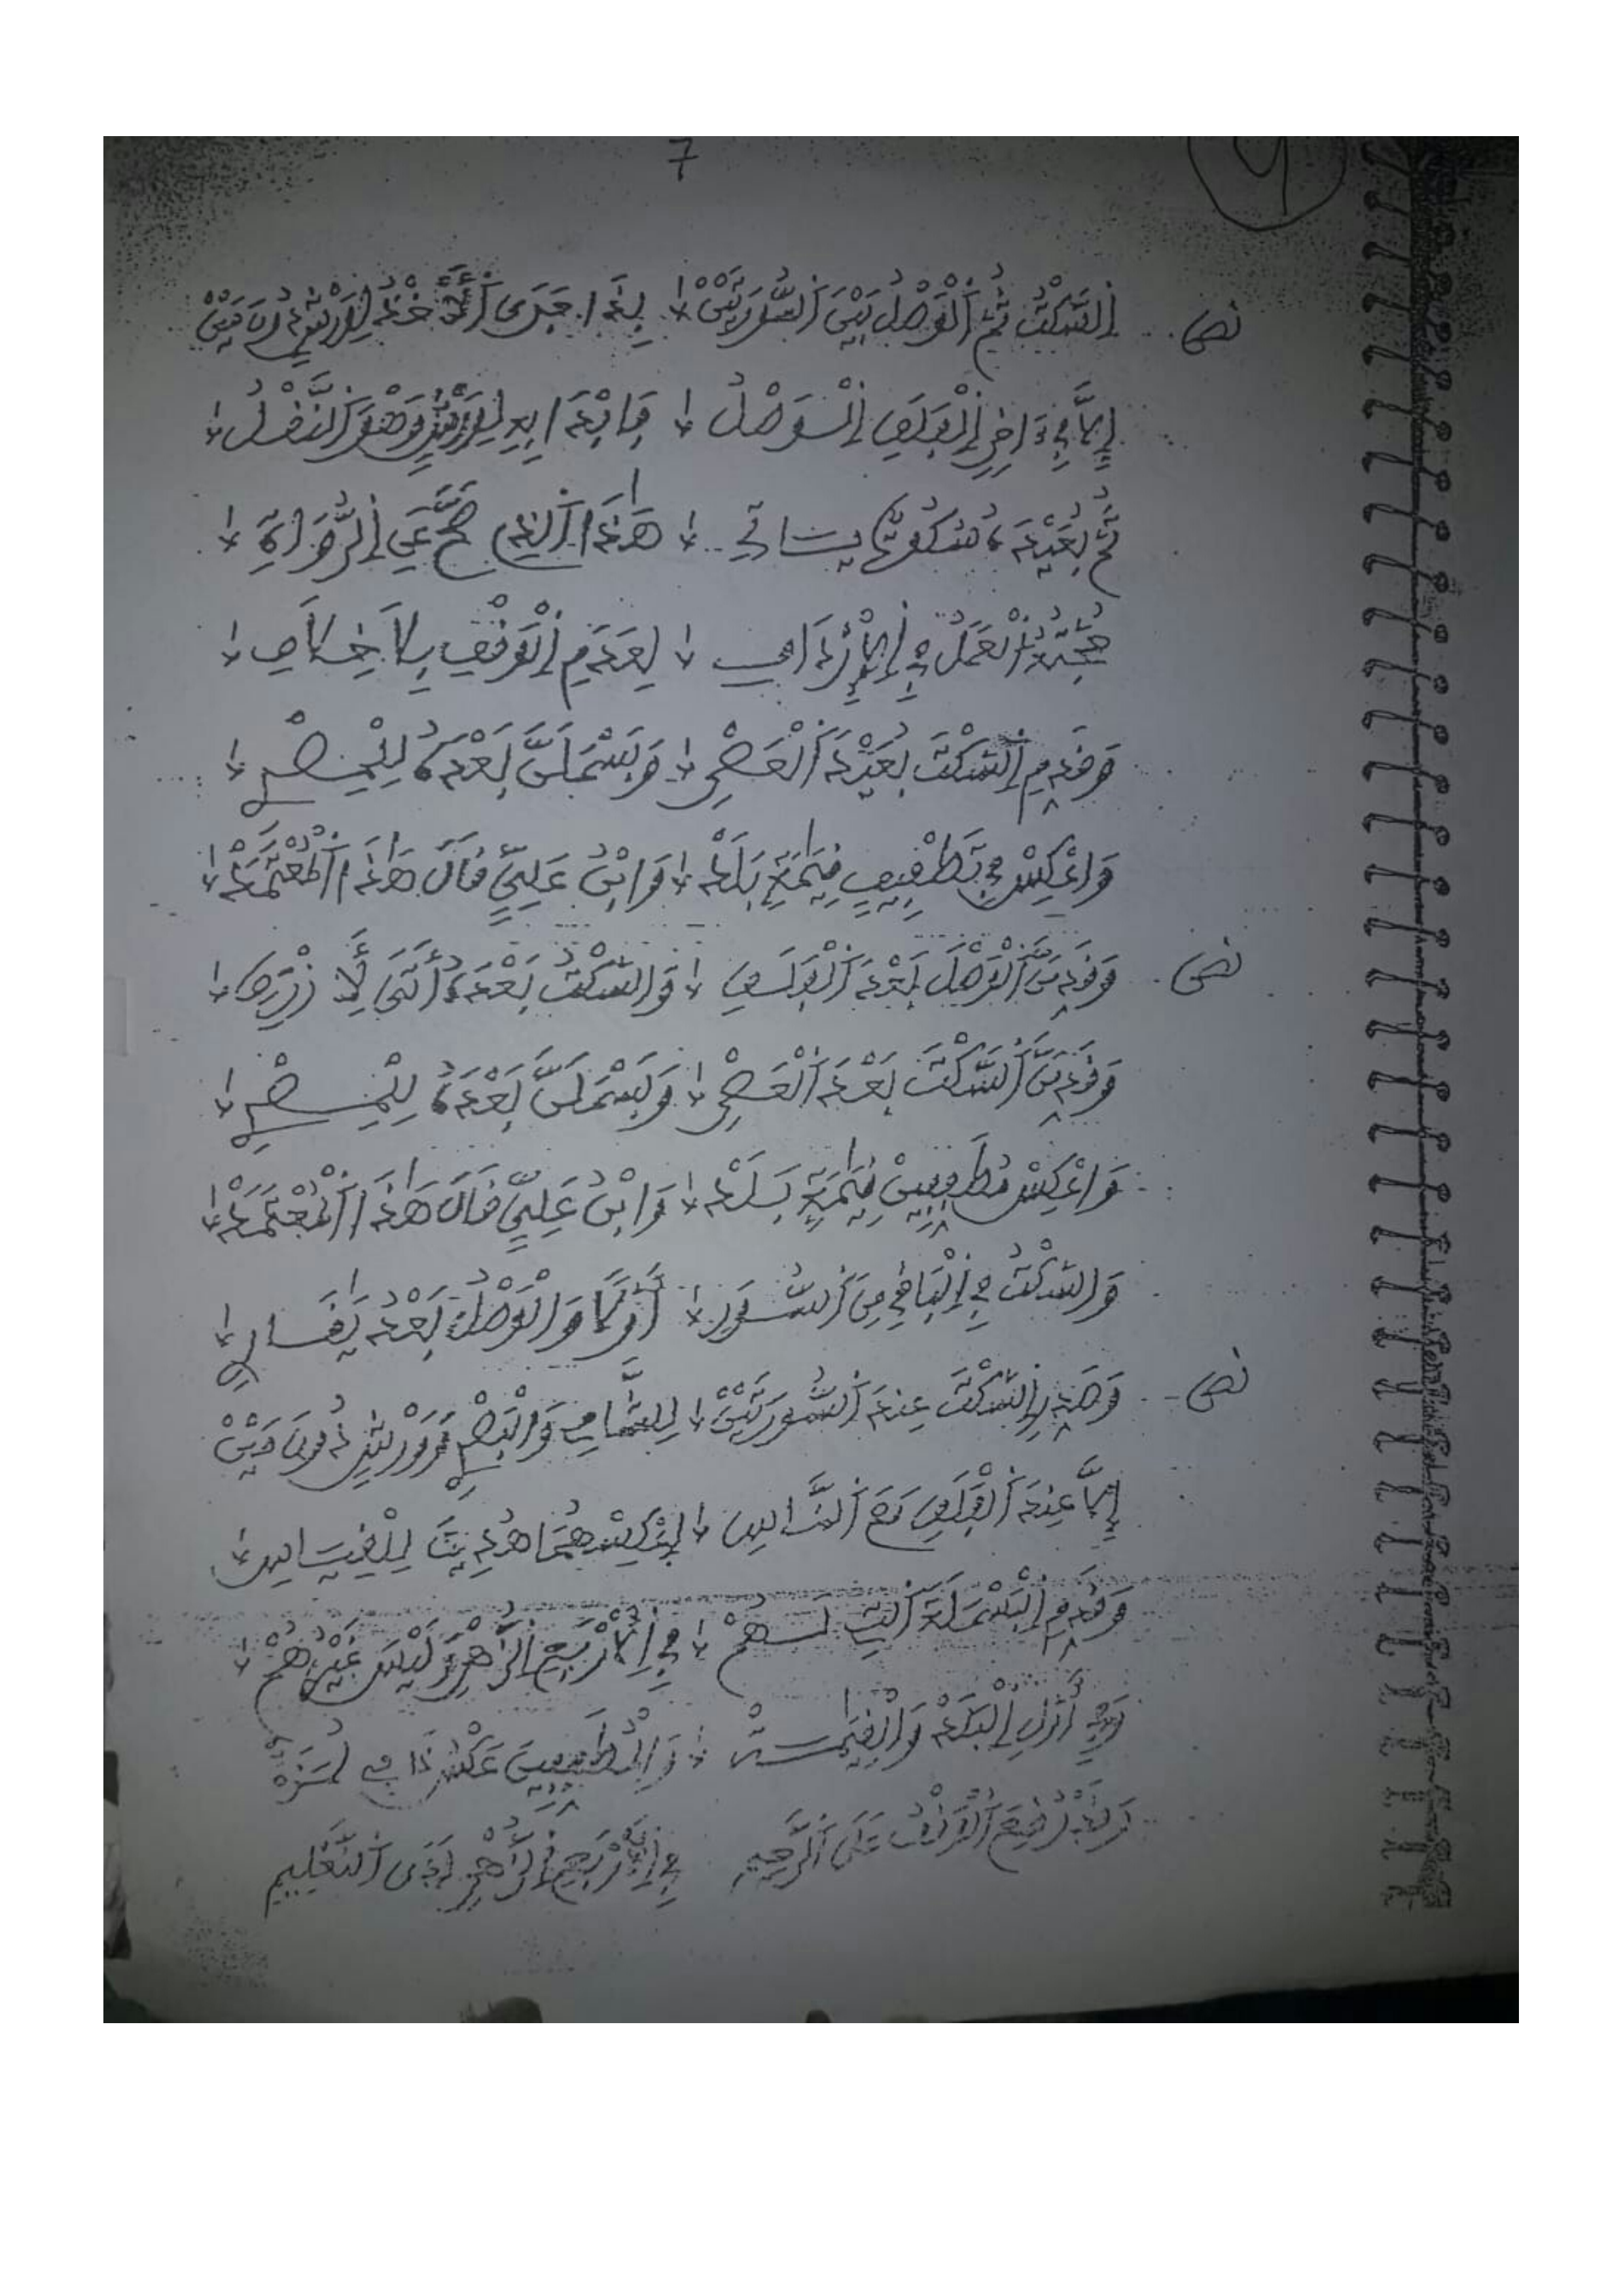 7
9
نص اَلسَّكْتُ ثُمَّ اَلْوَصْلُ بَيْنَ اَلسُّورَتَيْنْ بِذَا جَرَى اَلْأَخْذُ لِوَرْشٍ دُونَ مَيْنْ
إِلَّا فِي ءَاخِرِ اِلْفَلَقِ اِلْوَصْلُ فَابْدَا بِهِ لِوَرْشٍ وَهْوَ اَلنَّقْلُ
ثُمَّ بُعَيْدَهُ سُكُوتٌ يَاتِي هَذَا اَلذِي صَحَّ عَنِ اِلرُّوَاةِ
حُجَّتُهُ اَلْعَمَلُ فِي اِلْأَرْدَافِ لِعَدَمِ اِلْوَقْفِ بِلَا خِلَافِ
وَقَدِّمِ اِلسَّكْتَ بُعَيْدَ اَلْعَصْرِ وَبَسْمِلَنَّ بَعْدَهُ لِلْمِصْرِ
وَاعْكِسْ فِي تَطْفِيفٍ قِيَامَةٍ بَلَدْ وَابْنُ عَلِيٍّ قَالَ هَذَا اَلْمُعْتَمَدْ
نص وَقَدِّمَنَّ اَلْوَصْلَ بَعْدَ اَلْفَلَقِ وَالسَّكْتُ بَعْدَهُ أَتَى لِلْأَزْرَقِ
وَقَدِّمَنَّ اَلسَّكْتَ بَعْدَ اَلْعَصْرِ وَبَسْمِلَنَّ بَعْدَهُ لِلْمِصْرِ
وَاعْكِسْ مُطَفِّفِينَ قِيَامَةٍ بَلَدْ وَابْنُ عَلِيٍّ قَالَ هَذَا اَلْمُعْتَمَدْ
وَالسَّكْتُ فِي اِلْبَاقِي مِنَ اَلسُّوَرِ أَوَّلًا وَالْوَصْلُ بَعْدُ
نص وَصَدِّرِ اِلسَّكْتَ عِندَ اَلسُّورَتَيْنْ لِلشَّامِ وَالْبَصْرِ وَوَرْشٍ دُونَ مَيْنْ
إِلَّا عِندَ اَلْفَلَقِ مَعَ اَلنَّاسِ هُدِيتَ لِلْقِيَاسِ
وَقَدِّمِ اِلْبَسْمَلَةَ اَلتِي لَهُمْ فِي اِلْأَرْبَعِ اِلزُّهْرِ وَلَيْسَ غَيْرُهُمْ
اِلْبَلَدْ وَالْقِيَامَةْ وَالْمُطَفِّفِينَ عَكْسُ ذَا
اَلْوَقْفُ عَلَى اَلرَّحِيمِ فِي اِلْأَرْبَعِ اِلزُّهْرِ لَدَى اَلتَّعْلِيمِ